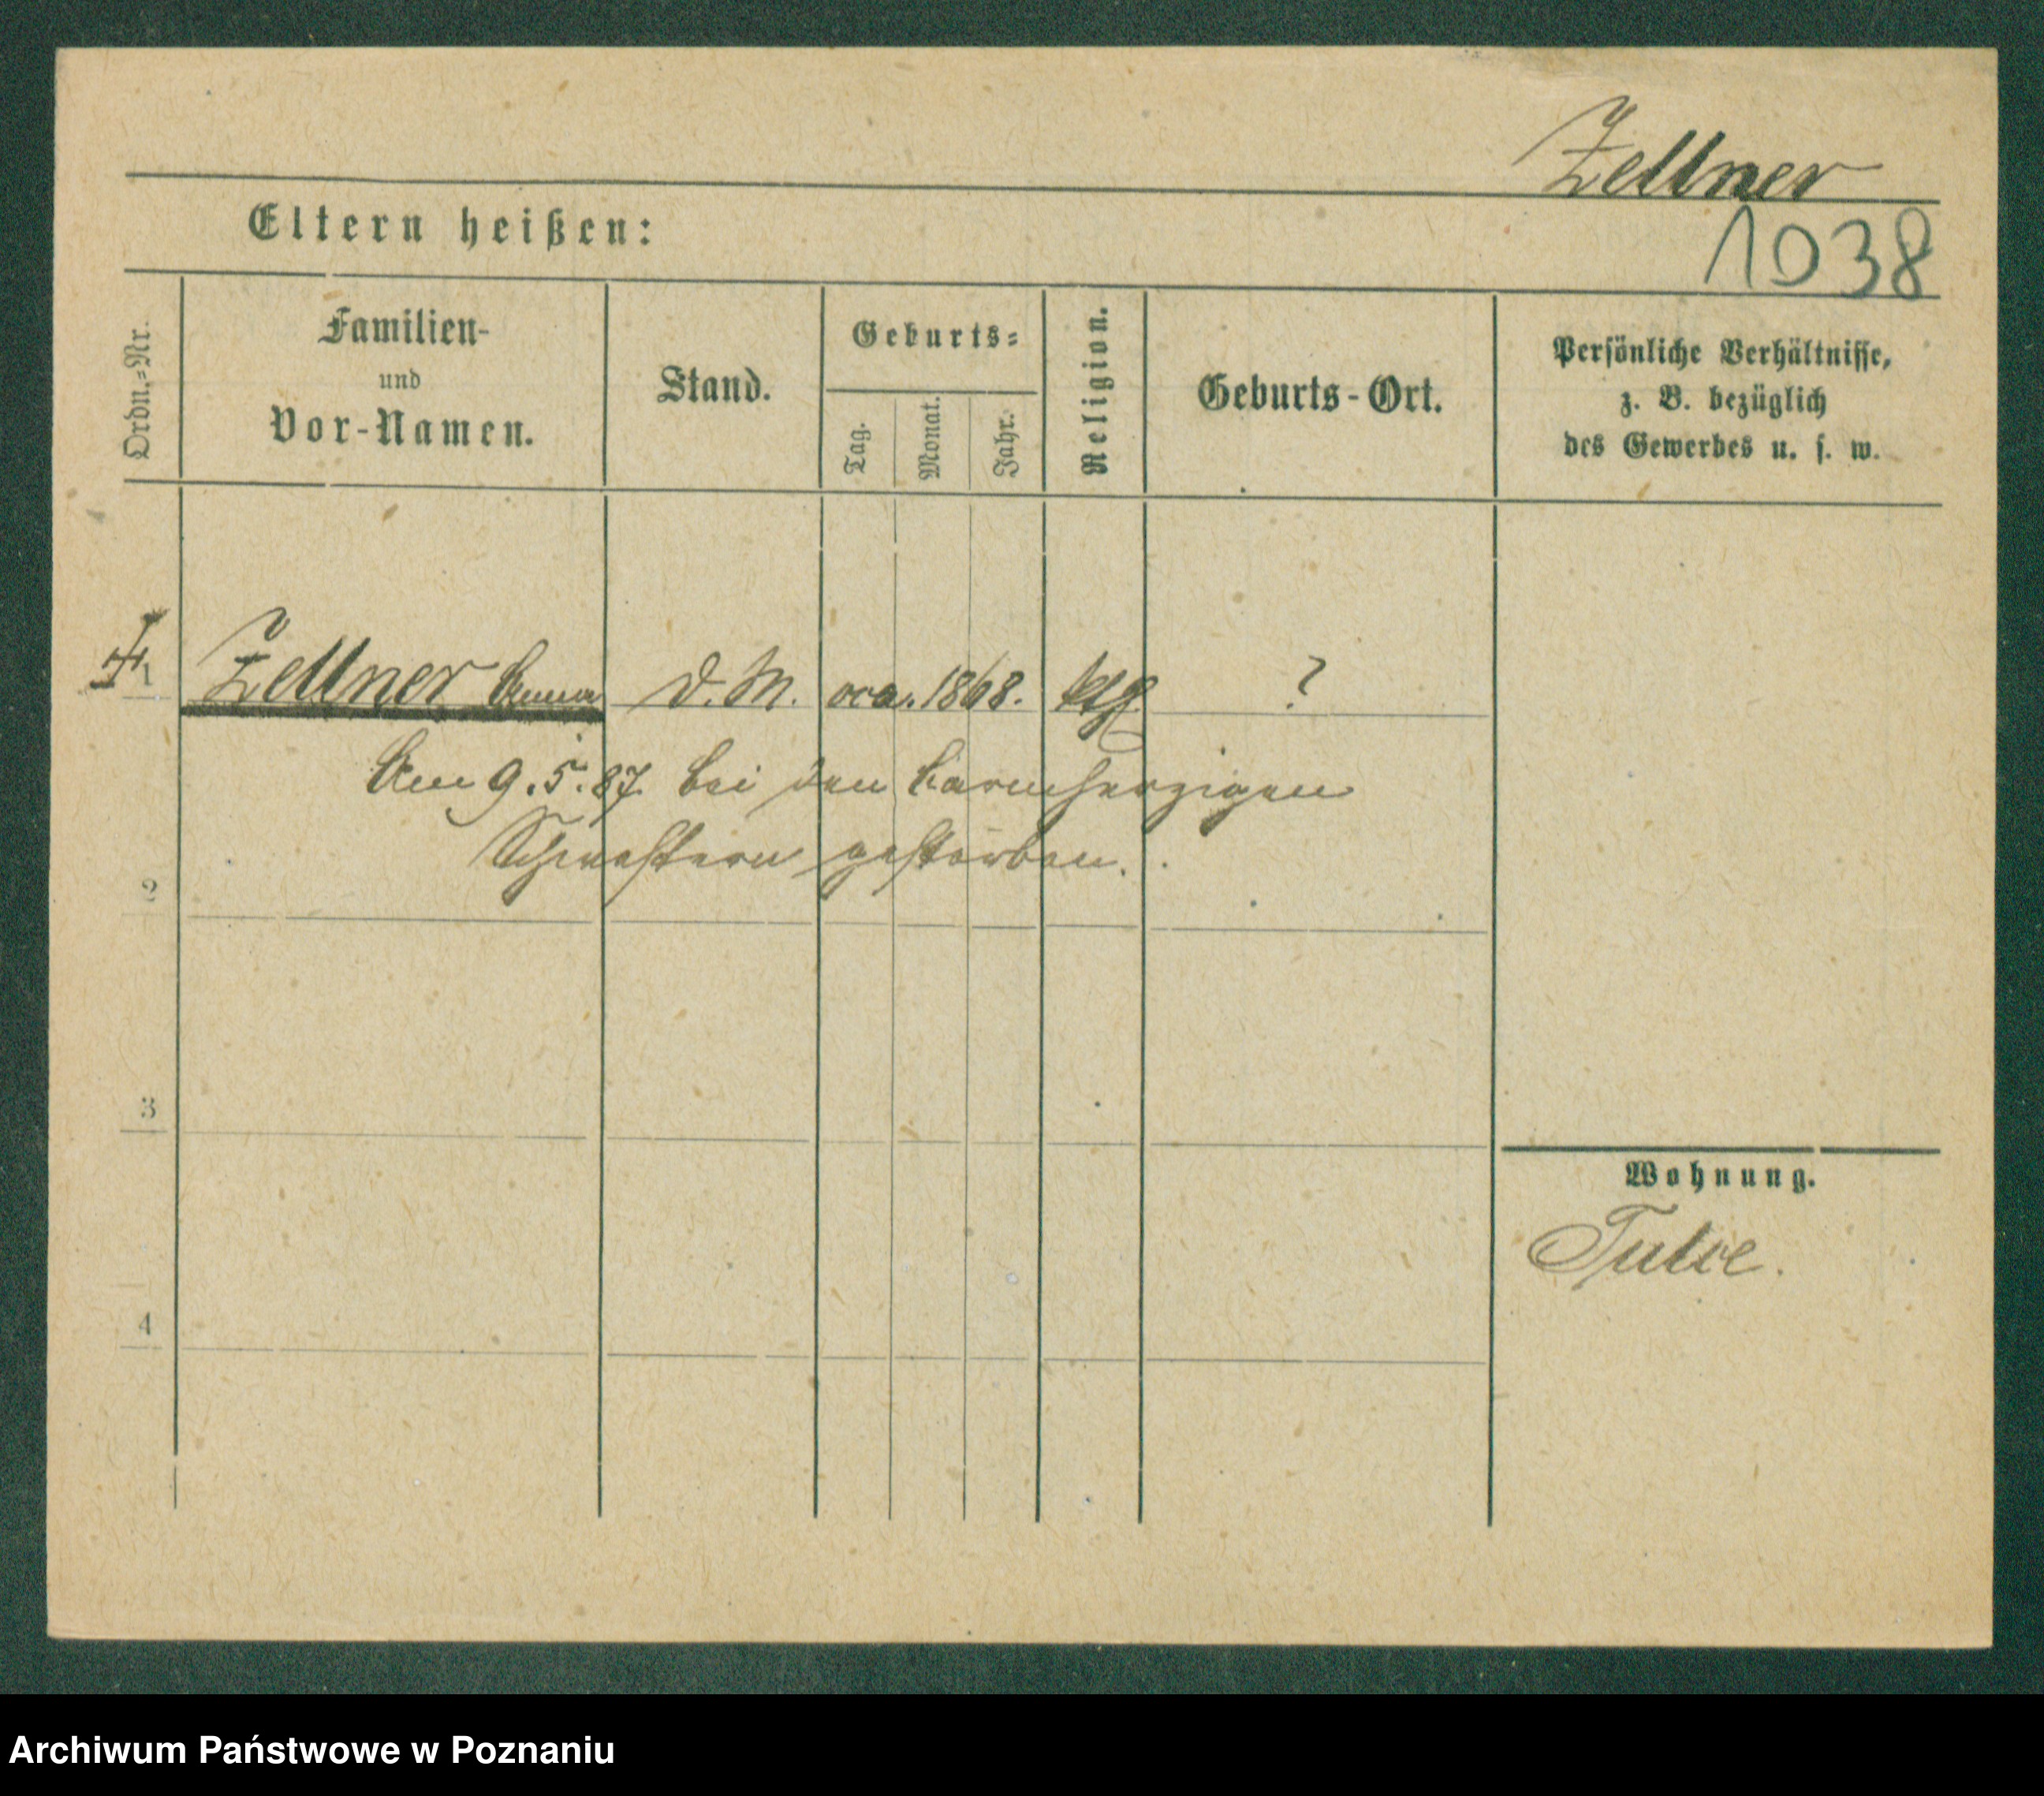 Zellner
Eltern heißen:
1038
Ordn.=Nr.
Familien-
und
Vor-Namen.
Stand.
Geburts=
Tag.
Monat.
Jahr.
Religion.
Geburts-Ort.
Persönliche Verhältnisse,
z. B. bezüglich
des Gewerbes u. s. w.
1 Zellner Anna D.M. cca. 1868. kth ?
Am 9.5.87. bei den barmherzigen
Schwestern gestorben.
2
3
Wohnung.
Tulce.
4
Archiwum Państwowe w Poznaniu